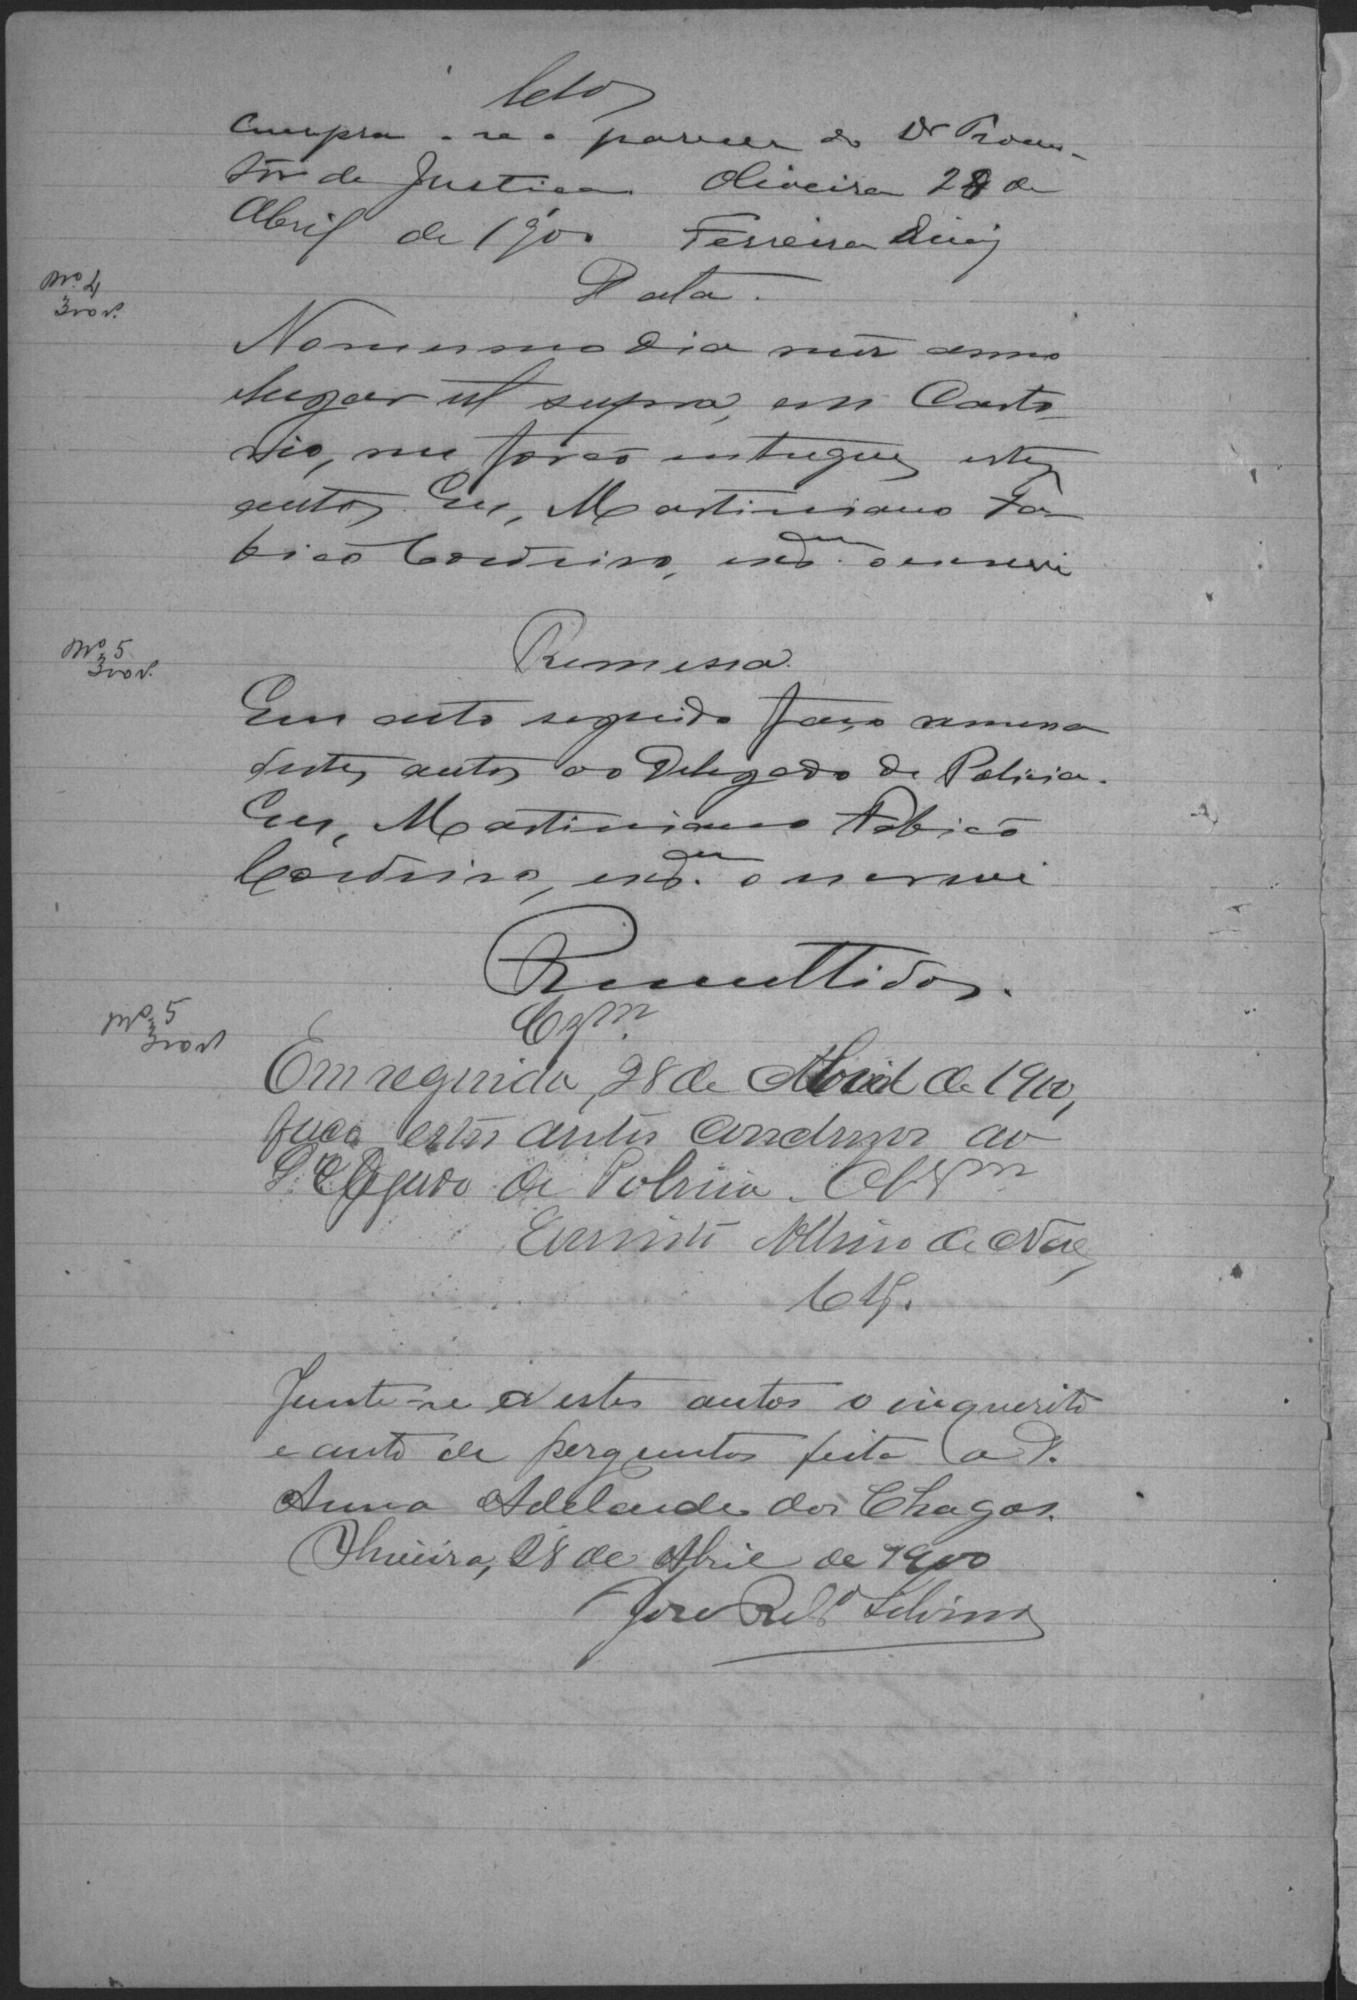 Cumpra-se o parecer do Dr Promo-
tôr de Justiça Oliveira 28 de
Abril de 1900 Ferreira Diniz
Data.
Nº 4
300 rs.
No mesmo dia mez anno
e lugar ut supra, em Carto-
rio, me forão entregues estes
autos. Eu, Martiniano Fa-
bicó Cordeiro, escram. o escrevi
Nº 5
300 rs.
Remessa.
Em acto seguido faço remessa
destes autos ao Delegado de Policia.
Eu, Martiniano
Cordeiro, escram. o escrevi
Remettidos.
Nº 5
300 rs
Clzm.
Em seguida, 28 de Abril de 1900,
faço estes autos conclusos ao
Delegado de Policia.
de
Junte-se a estes autos o inquerito
e auto de perguntas feito a D.
Anna Adelaide das Chagas.
Oliveira, 28 de Abril de 1900
José Rib.º Silvino